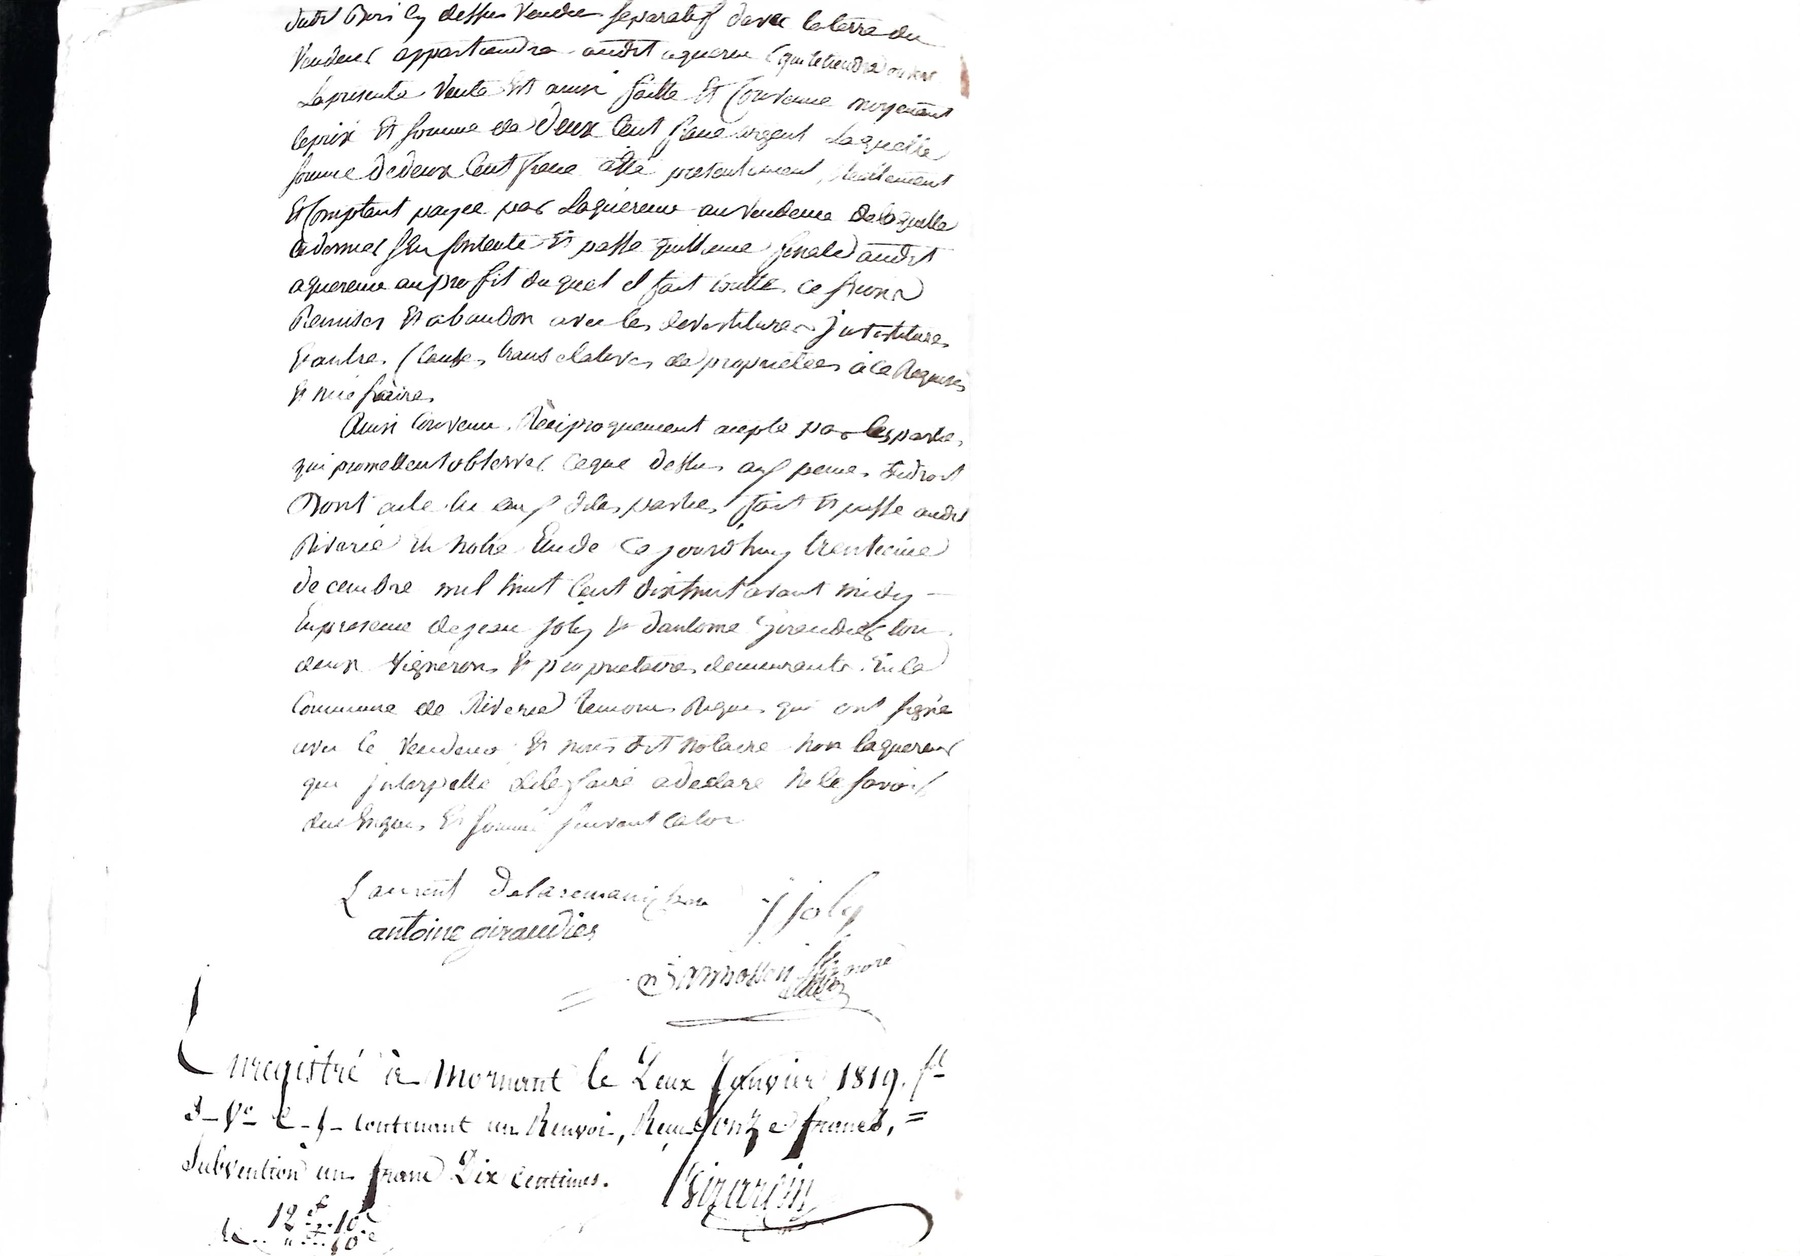 dudit Bois cy dessus vendue separatif davec la terre du
vendeur appartiendra audit aquereur qui le tiendra
La presente vente est ainsi faitte et convenue moyenant
le prix et somme de deux cent franc argent laquelle
somme de deux cent franc a été presentement, réellement
et comptant payée par laquereur au vendeur de laquelle
ce dernier s'en contente et passe quittance finale audit
aquereur au profit duquel il fait toutte cession
Remises et abandon avec les devestitures jnvestitures
et autre clauses translatives de proprietées à ce Requises
et nécessaires
Ainsi convenu Réciproquement accepté par les parties
qui promettent observer ce que dessus aux peines de droit
Dont acte lu aux dites parties fait et passé audit
Riverie en notre Etude ce jourdhuy trente
decembre mil huit cent dix huit avant midy —
En presence de jean joly et dantoine Giraudier tou
deux vignerons et proprietaires demeurants en la
Commune de Riverie temoins Requis qui ont signé
avec le vendeur et nous dit notaire non laquereur
qui jnterpellé de le faire a declaré ne le savoir
de ce Enquis et sommé suivant la loi
Laurent j joly
antoine giraudier
Enregistré à Mornant le Deux Janvier 1819. f°
3 v° c. contenant un Renvoi, Reçu onze francs, =
Subvention un franc Dix Centimes.
12 f. 10 c